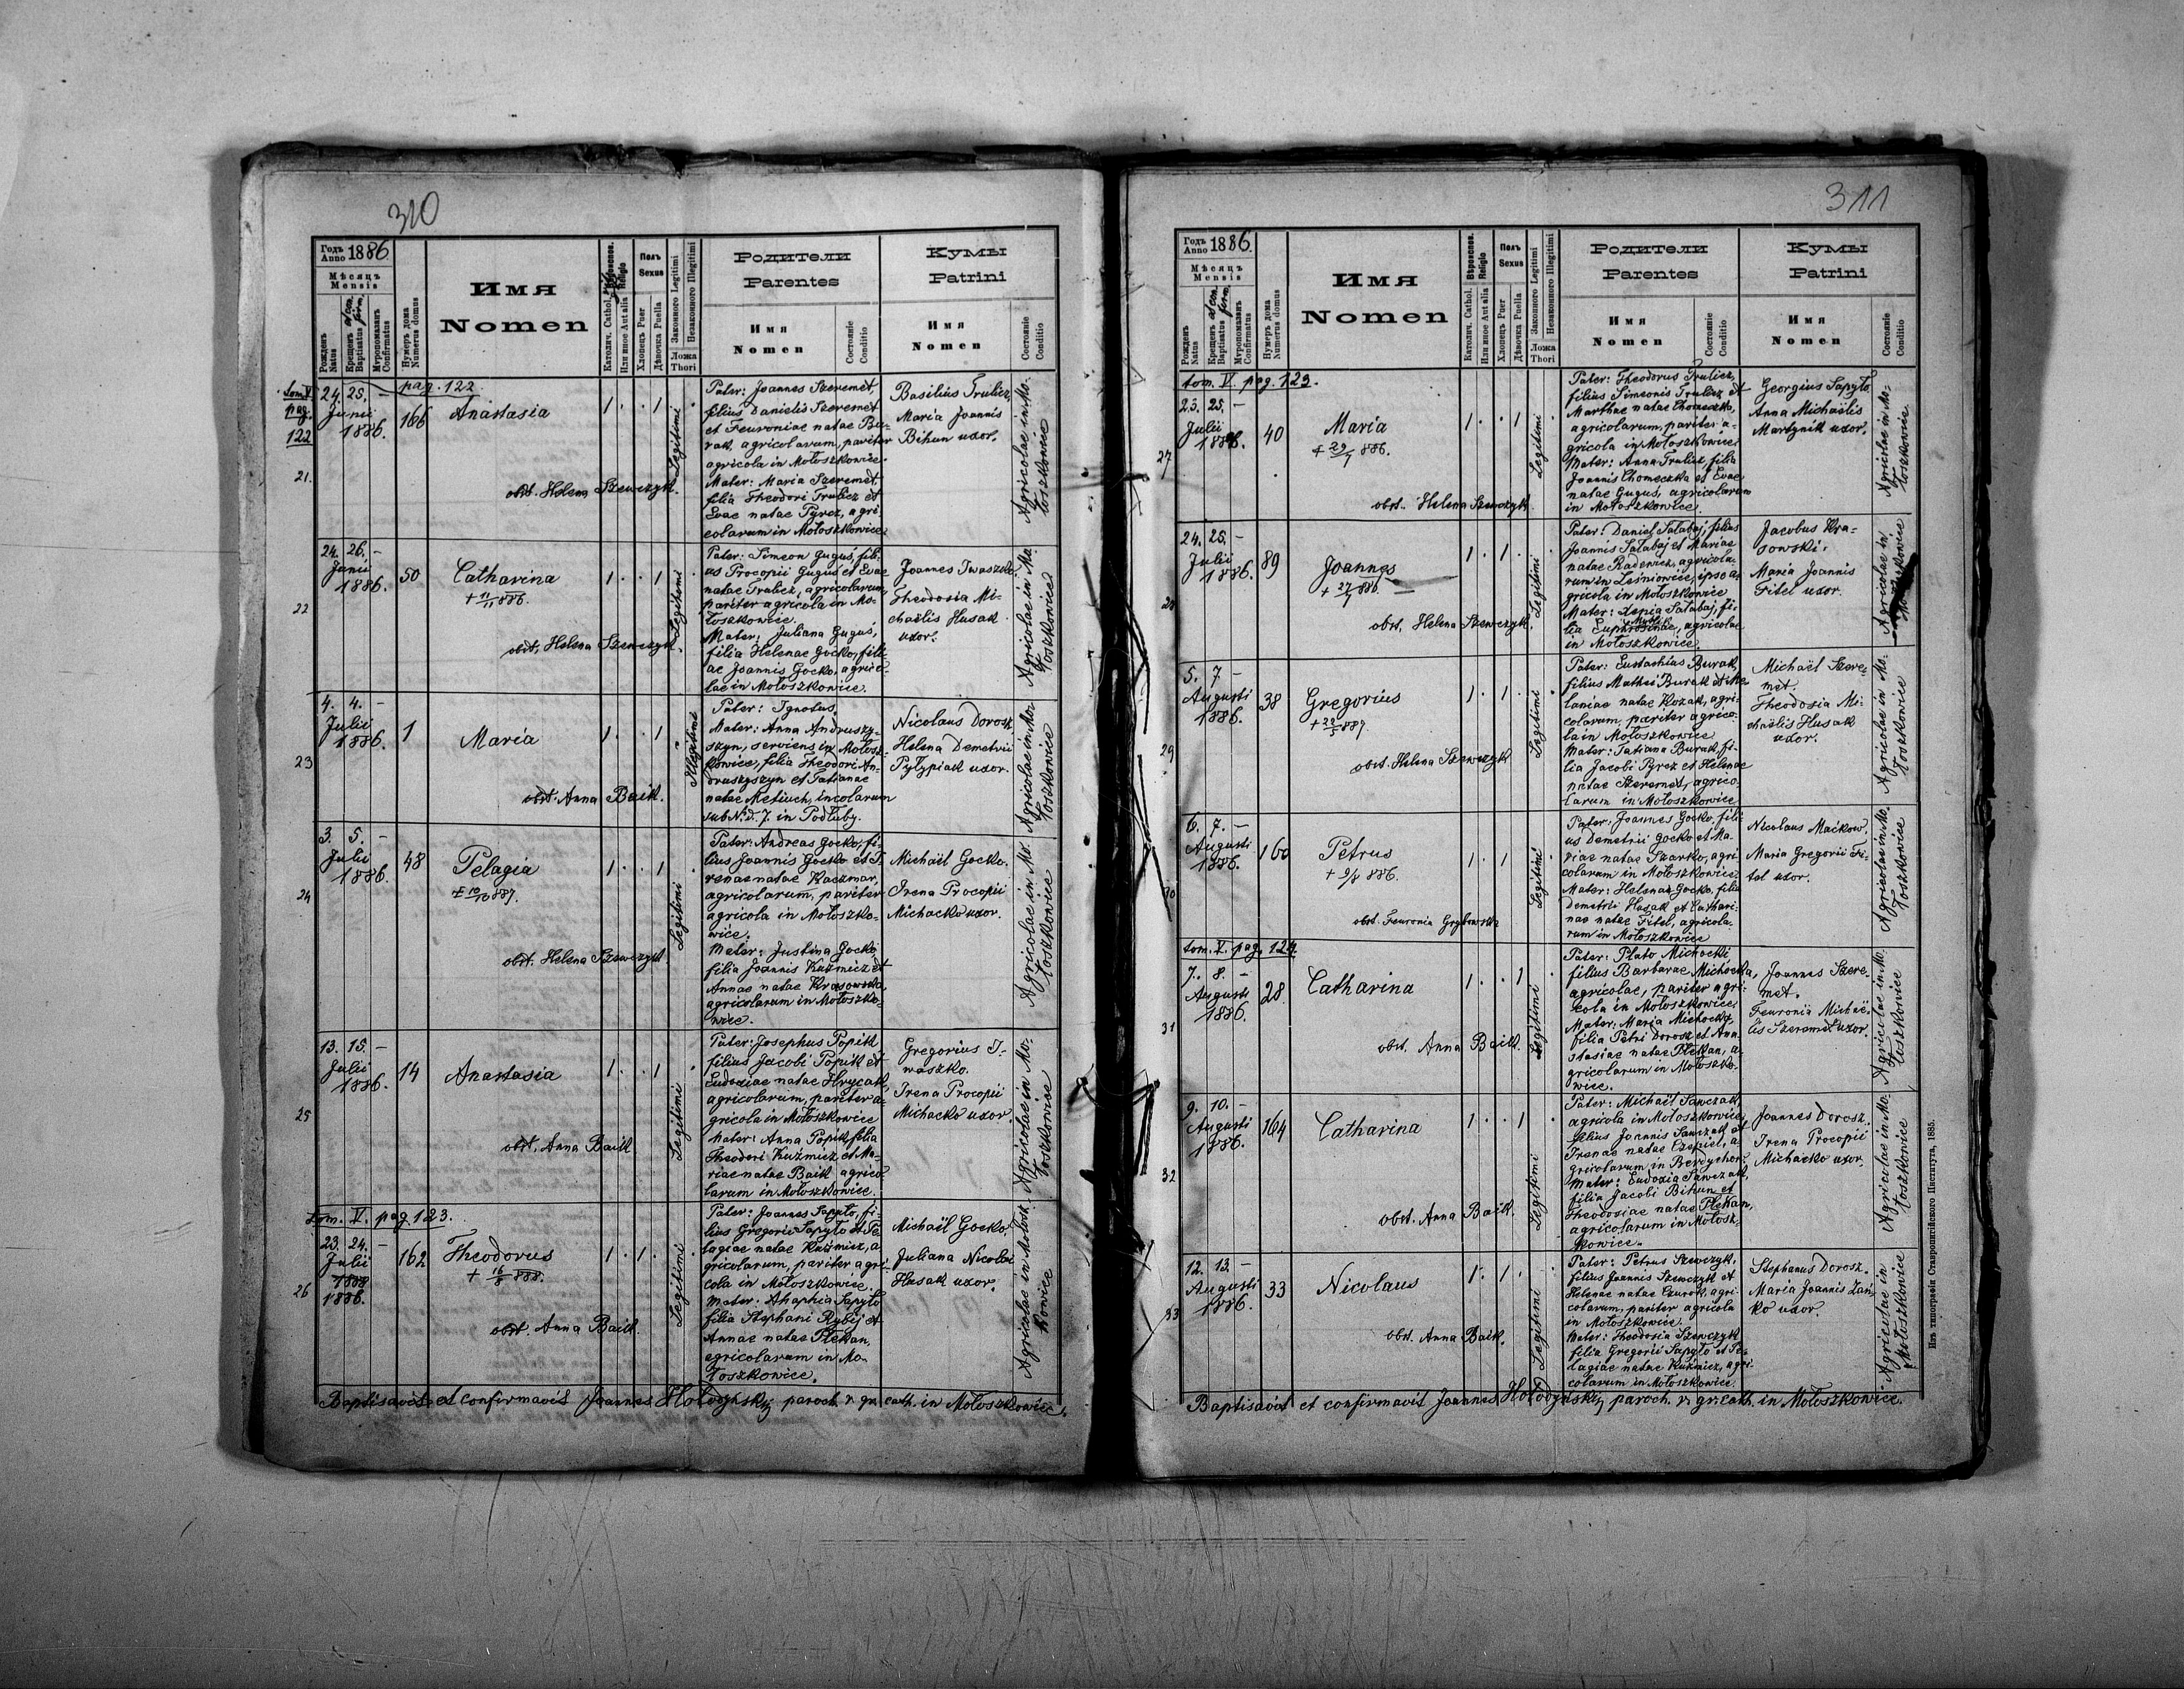 310
Годъ Anno 1886.
Мѣсяцъ
Mensis
Рожденъ Natus
Крещенъ Baptisatus et con firm.
Муропомазанъ Confirmatus
Нумеръ дома Numerus domus
Имя
Nomen
Вѣроиспов. Religio
Католич. Cathol.
Или иное Aut alia
Полъ
Sexus
Хлопецъ Puer
Дѣвочка Puella
Законного Legitimi
Незаконного Illegitimi
Ложа
Thori
Родители
Parentes
Имя
Nomen
Состояніе
Conditio
Кумы
Patrini
Имя
Nomen
Состояніе
Conditio
tom. V
pag.
122
pag. 122.
21.
24. 25. —
Junii
1886.
166
Anastasia
1 . . 1 .
Legitimi
obst. Helena Szewczyk.
Pater: Joannes Szeremet,
filius Danielis Szeremet
et Feuroniae natae Bu-
rak, agricolarum, pariter
agricola in Mołoszkowice.
Mater: Maria Szeremet,
filia Theodori Trulicz et
Evae natae Pyrcz, agri
colarum in Mołoszkowice
Basilius Trulicz
Maria Joannis
Bihun uxor.
Agricolae in Mo-
łoszkowice
22
24. 26. —
Junii
1886.
50
Catharina
+ 11/11 886.
1 . . 1 .
Legitimi
obst. Helena Szewczyk.
Pater: Simeon Guguś, fili-
us Procopii Guguś et Evae
natae Trulicz, agricolarum,
pariter agricola in Mo-
łoszkowice.
Mater: Juliana Guguś,
filia Helenae Gocko, fili
ae Joannis Gocko, agrico-
lae in Mołoszkowice.
Joannes Iwaszko.
Theodosia Mi-
chaëlis Husak
uxor.
Agricolae in Mo-
łoszkowice
23
4. 4. —
Julii
1886.
1
Maria
1 . . 1
Illegitimi
obst. Anna Baik.
Pater: Ignotus.
Mater: Anna Andruszy-
szyn, serviens in Mołosz-
kowice, filia Theodori An-
druszyszyn et Tatianae
natae Metiuch, incolarum
sub N. d. 7. in Podłuby.
Nicolaus Dorosz.
Helena Demetrii
Pyłypiak uxor.
Agricolae in Mo-
łoszkowice
24
3. 5. —
Julii
1886.
48
Pelagia
+ 10/10 887.
1 . . 1 .
Legitimi
obst. Helena Szewczyk
Pater: Andreas Gocko, fi-
lius Joannis Gocko et I-
renae natae Kaczmar,
agricolarum, pariter
agricola in Mołoszko-
wice.
Mater: Justina Gocko
filia Joannis Kuźmicz et
Annae natae Krasowska,
agricolarum in Mołoszko-
wice.
Michaël Gocko.
Irena Procopii
Michacko uxor.
Agricolae in Mo-
łoszkowice
25
13. 15. —
Julii
1886.
14
Anastasia
1 . . 1 .
Legitimi
obst. Anna Baik
Pater: Josephus Popik
filius Jacobi Popik et
Eudoxiae natae Hrycak,
agricolarum, pariter a-
gricola in Mołoszkowice
Mater: Anna Popik filia
Theodori Kuźmicz et Ma-
riae natae Baik agrico
larum in Mołoszkowice.
Gregorius I-
waszko.
Irena Procopii
Michacko uxor.
Agricolae in Mo-
łoszkowice
tom. V. pag. 123.
26
23. 24. —
Julii
1888
1886.
162
Theodorus
+ 16/8 888.
1 . 1 . .
Legitimi
obst. Anna Baik.
Pater: Joannes Sapyło, fi-
lius Gregorii Sapyło et Pe-
lagiae natae Kuźmicz, a
gricolarum, pariter agri-
cola in Mołoszkowice.
Mater: Ahaphia Sapyło
filia Stephani Rybij et
Annae natae Plekan,
agricolarum in Mo-
łoszkowice.
Michaël Gocko.
Juliana Nicolai
Husak uxor.
Agricolae in Mołosz
kowice
Baptisavit et confirmavit Joannes Hołodyński paroch. r. gr. cath. in Mołoszkowice.
311
Годъ Anno 1886.
Мѣсяцъ
Mensis
Рожденъ Natus
Крещенъ Baptisatus et con firm.
Муропомазанъ Confirmatus
Нумеръ дома Numerus domus
Имя
Nomen
Вѣроиспов. Religio
Католич. Cathol.
Или иное Aut alia
Полъ
Sexus
Хлопецъ Puer
Дѣвочка Puella
Законного Legitimi
Незаконного Illegitimi
Ложа
Thori
Родители
Parentes
Имя
Nomen
Состояніе
Conditio
Кумы
Patrini
Имя
Nomen
Состояніе
Conditio
tom. V. pag. 123.
27
23. 25. —
Julii
1886.
40
Maria
+ 29/7 886.
1 . . 1 .
Legitimi
obst. Helena Szewczyk
Pater: Theodorus Trulicz,
filius Simeonis Trulicz et
Marthae natae Chomeczko,
agricolarum, pariter a-
gricola in Mołoszkowice
Mater: Anna Trulicz, filia
Joannis Chomeczko et Evae
natae Guguś, agricolarum
in Mołoszkowice.
Georgius Sapyło
Anna Michaëlis
Martynik uxor.
Agricolae in Mo-
łoszkowice.
28
24. 25. —
Julii
1886.
89
Joannes
+ 27/7 886.
1 . 1 . .
Legitimi
obst. Helena Szewczyk.
Pater: Daniel Sałabaj, filius
Joannis Sałabaj et Mariae
natae Radewicz, agricola-
rum in Leśniowice, ipse a-
gricola in Mołoszkowice
Mater: Xenia Sałabaj, fi-
lia Euphrosinae, agricolae
in Mołoszkowice.
Jacobus Kra-
sowski.
Maria Joannis
Fitel uxor.
Agricolae in
Mołoszkowice
29
5. 7 —
Augusti
1886.
38
Gregorius
1 . 1 . .
Legitimi
obst. Helena Szewczyk
Pater: Eustachius Burak,
filius Mathei Burak et Me
laniae natae Kozak, agri-
colarum, pariter agrico-
la in Mołoszkowice
Mater: Tatiana Burak, fi-
lia Jacobi Pyrcz et Helenae
natae Szeremet, agrico-
larum in Mołoszkowice
Michaël Szere-
met.
Theodosia Mi-
chaëlis Husak
uxor.
Agricolae in Mo-
łoszkowice
30
6. 7. —
Augusti
1886.
160
Petrus
+ 9/8 886.
1 . 1 .
Legitimi
obst. Feuronia Grybowska
Pater: Joannes Gocko, fili-
us Demetrii Gocko et Ma-
riae natae Szarko, agri-
colarum in Mołoszkowice.
Mater: Helena Gocko, filia
Demetrii Husak et Cathari-
nae natae Fitel, agricola-
rum in Mołoszkowice
Nicolaus Maćkow.
Maria Gregorii Fi-
tel uxor.
Agricolae in Mo-
łoszkowice
tom. V. pag. 124.
31
7. 8. —
Augusti
1886.
28
Catharina
1 . . 1 .
Legitimi
obst. Anna Baik.
Pater: Plato Michocki
filius Barbarae Michocka,
agricolae, pariter agri-
cola in Mołoszkowice
Mater: Maria Michocka,
filia Petri Dorosz et Ana-
stasiae natae Plekan, a-
gricolarum in Mołoszko-
wice.
Joannes Szere-
met.
Feuronia Michaë-
lis Szeremet uxor.
Agricolae in Mo-
łoszkowice
32
9. 10. —
Augusti
1886.
164
Catharina
1 . . 1 .
Legitimi
obst. Anna Baik.
Pater: Michaël Sawczak,
agricola in Mołoszkowice,
filius Joannis Sawczak et
Irenae natae Czepiel, a-
gricolarum in Berdychow.
Mater: Eudoxia Sawczak,
filia Jacobi Bihun et
Theodosiae natae Plekan,
agricolarum in Mołosz-
kowice.
Joannes Dorosz.
Irena Procopii
Michacko uxor.
Agricolae in Mo-
łoszkowice
33
12. 13. —
Augusti
1886.
33
Nicolaus
1 . 1 . .
Legitimi
obst. Anna Baik.
Pater: Petrus Szewczyk.
filius Joannis Szewczyk et
Helenae natae agri-
colarum, pariter agricola
in Mołoszkowice.
Mater: Theodosia Szewczyk
filia Gregorii Sapyło et Pe-
lagiae natae Kuźmicz, agri-
colarum in Mołoszkowice.
Stephanus Dorosz.
Maria Joannis Łań-
ko uxor.
Agricolae in
Mołoszkowice
Baptisavit et confirmavit Joannes Hołodyński, paroch. r. gr. cath. in Mołoszkowice.
Изъ типографіи Ставропигійского Института, 1885.